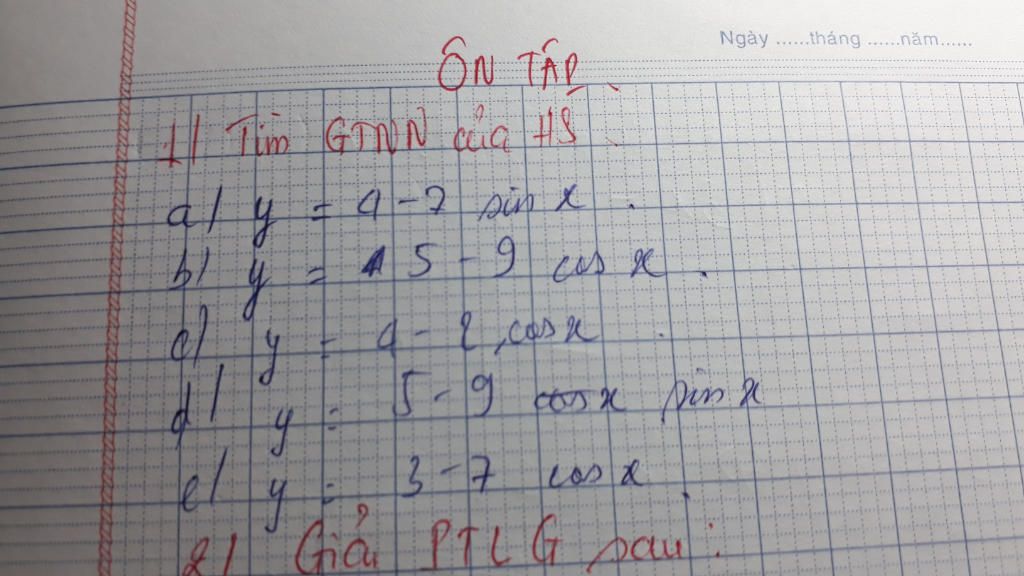 Ngày ......tháng ......năm......
ÔN TẬP
1/ Tìm GTNN của HS
a/ y = 4 - 7 sin x .
b/ y = 5 - 9 cos x .
c/ y = 4 - 2 cos x .
d/ y = 5 - 9 cos x sin x
e/ y = 3 - 7 cos x .
2/ Giải PTLG sau :